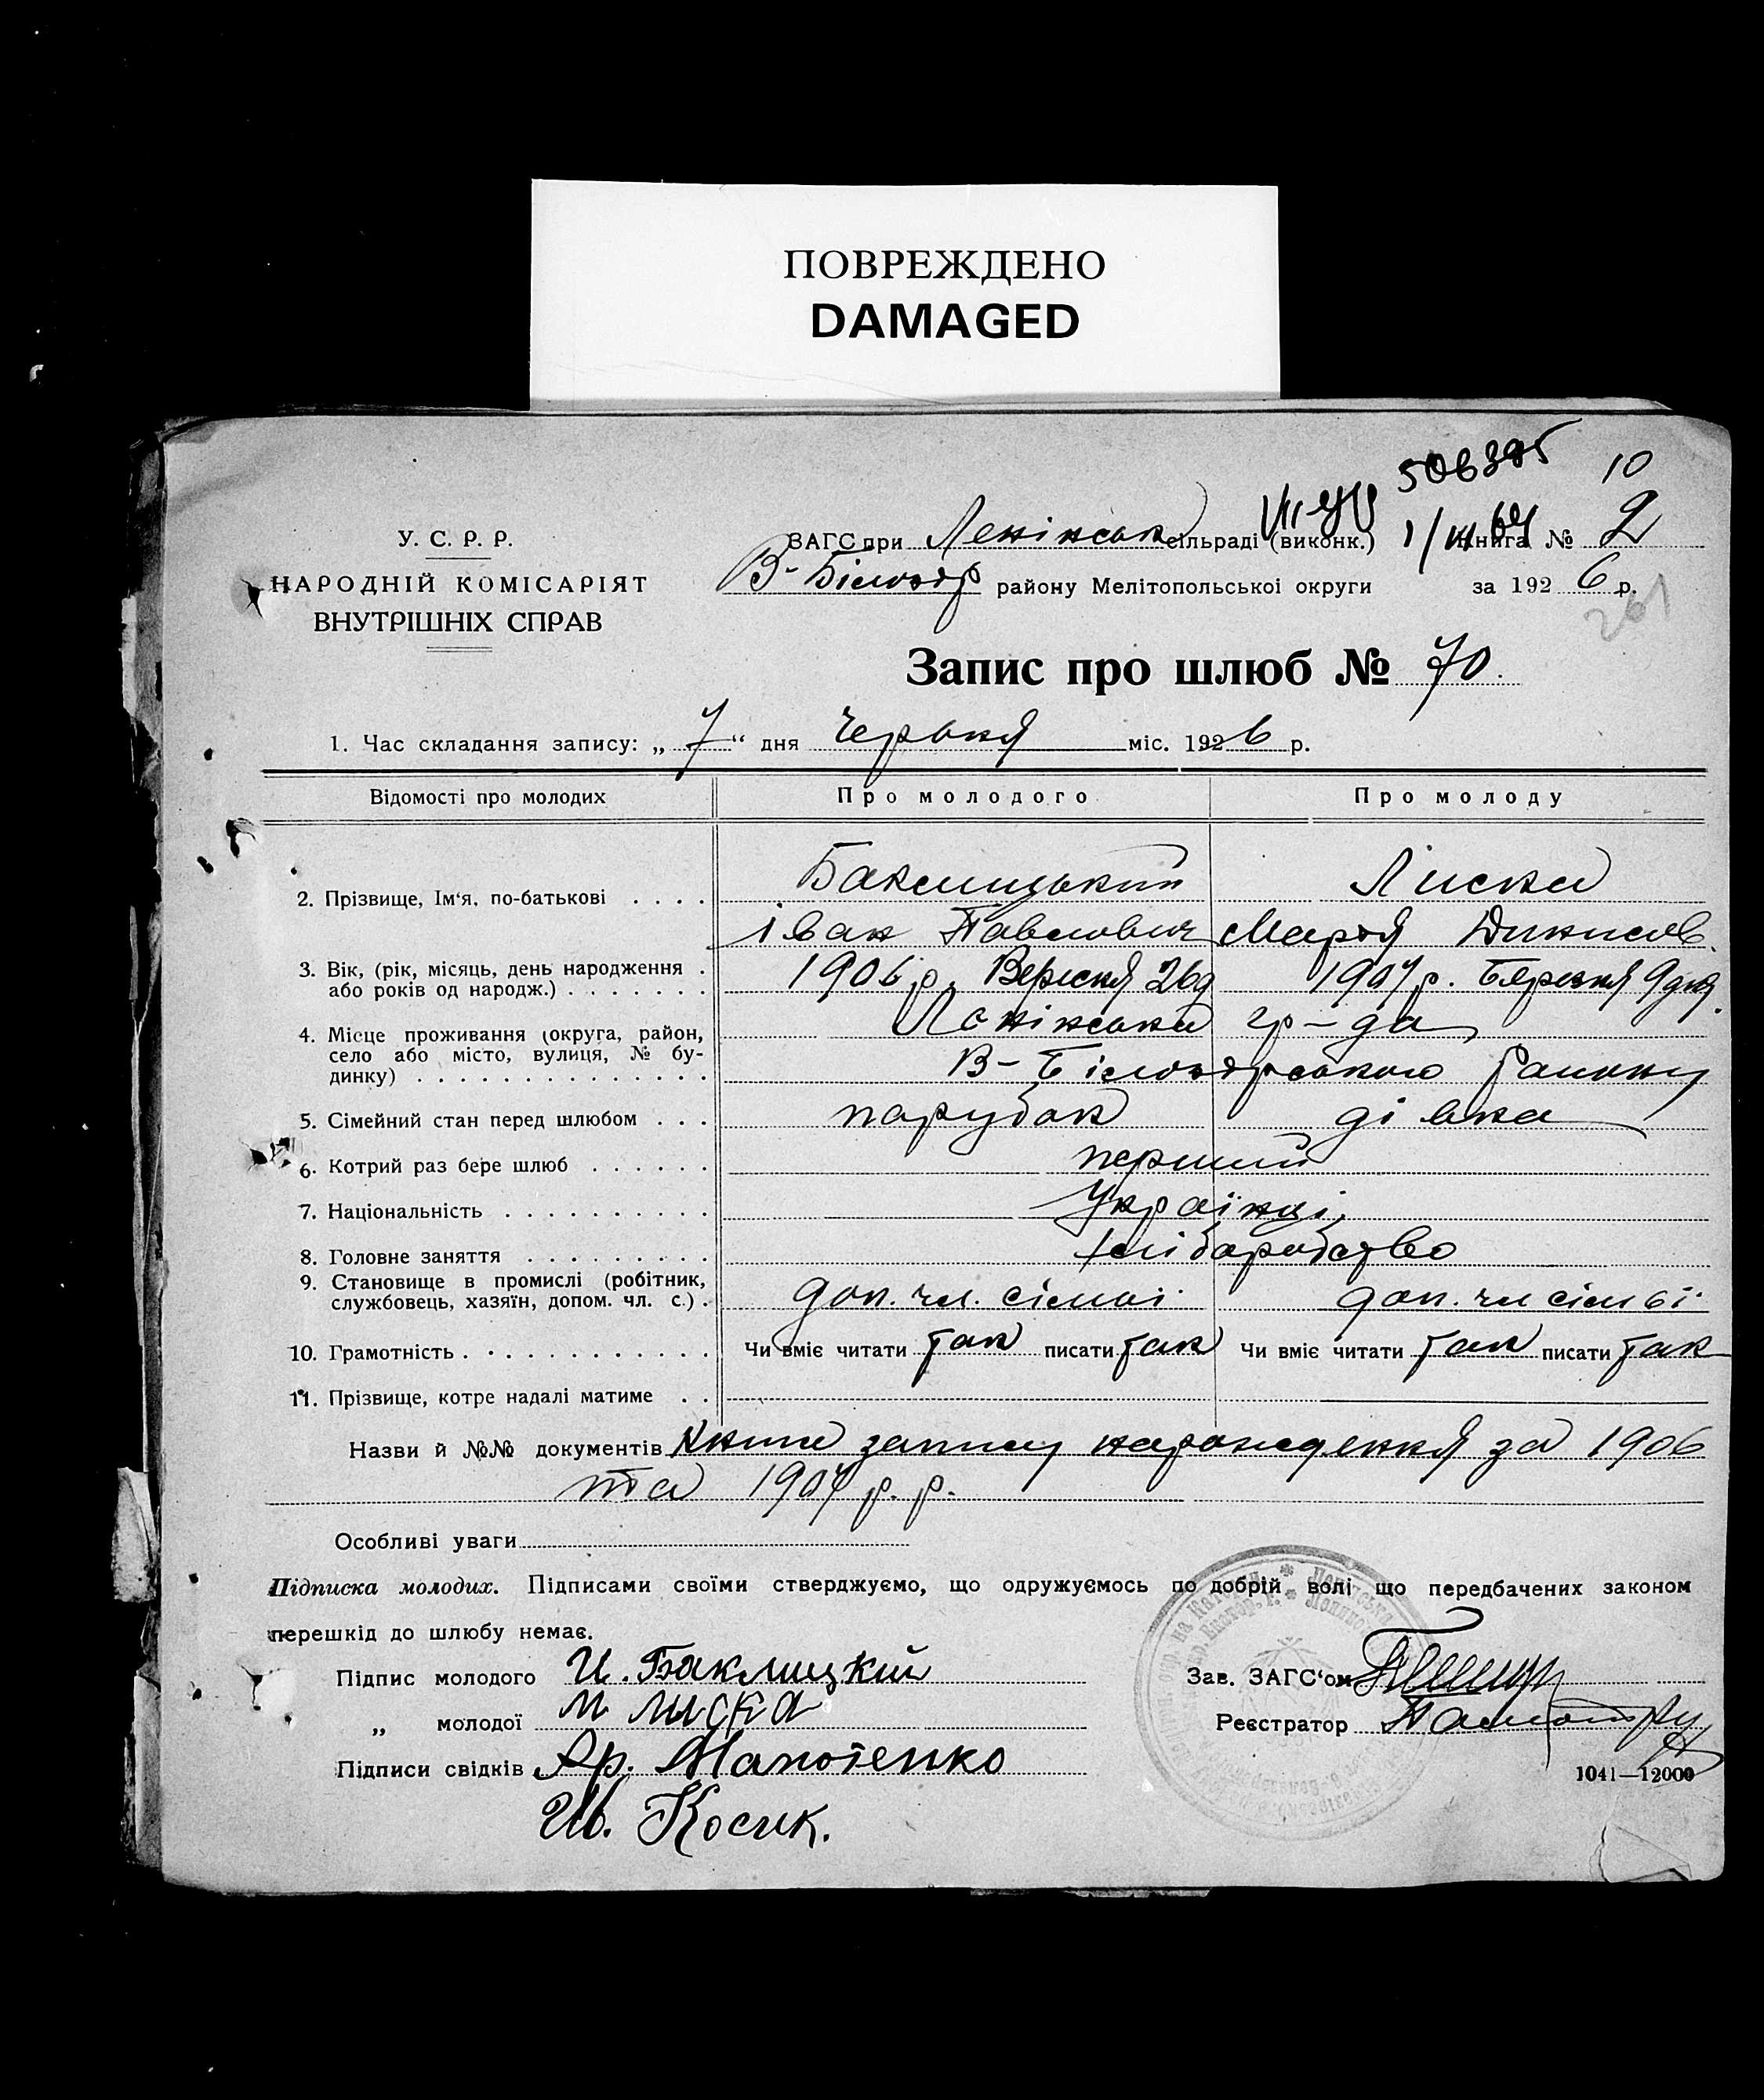 ПОВРЕЖДЕНО
DAMAGED
506395 10
У. С. Р. Р.
НАРОДНІЙ КОМІСАРІЯТ
ВНУТРІШНІХ СПРАВ
ЗАГС при Ленінськ сільраді (виконк.) Книга № 2
В-Білозер району Мелітопольської округи за 1926 р.
261
Запис про шлюб № 70.
1. Час складання запису: „7“ дня Червня міс. 1926 р.
Відомості про молодих Про молодого Про молоду
2. Прізвище, Ім‘я, по-батькові Баклицький Лиска
Іван Павлович Марія Дикисов.
3. Вік, (рік, місяць, день народження або років од народж.) 1906 р. Вересня 26д 1907 р. Березня 9 дня.
4. Місце проживання (округа, район, село або місто, вулиця, № будинку) Ленінська гр-да
В-Білозерського Району
5. Сімейний стан перед шлюбом парубок дівка
6. Котрий раз бере шлюб перший
7. Національність Українці
8. Головне заняття хліборобство
9. Становище в промислі (робітник, службовець, хазяїн, допом. чл. с.) доп. чл. сімьі доп. чл сімьї
10. Грамотність Чи вміє читати так писати так Чи вміє читати так писати так
11. Прізвище, котре надалі матиме
Назви й №№ документів Книга запису нарождення за 1906
та 1907 р. р.
Особливі уваги
Підписка молодих. Підписами своїми стверджуємо, що одружуємось по добрій волі що передбачених законом
перешкід до шлюбу немає.
Підпис молодого И. Баклицкий Зав. ЗАГС‘ом
„ молодої М Лиска Реєстратор
Підписи свідків Яр. Мапотенко
1041—12000
Ив. Косик.